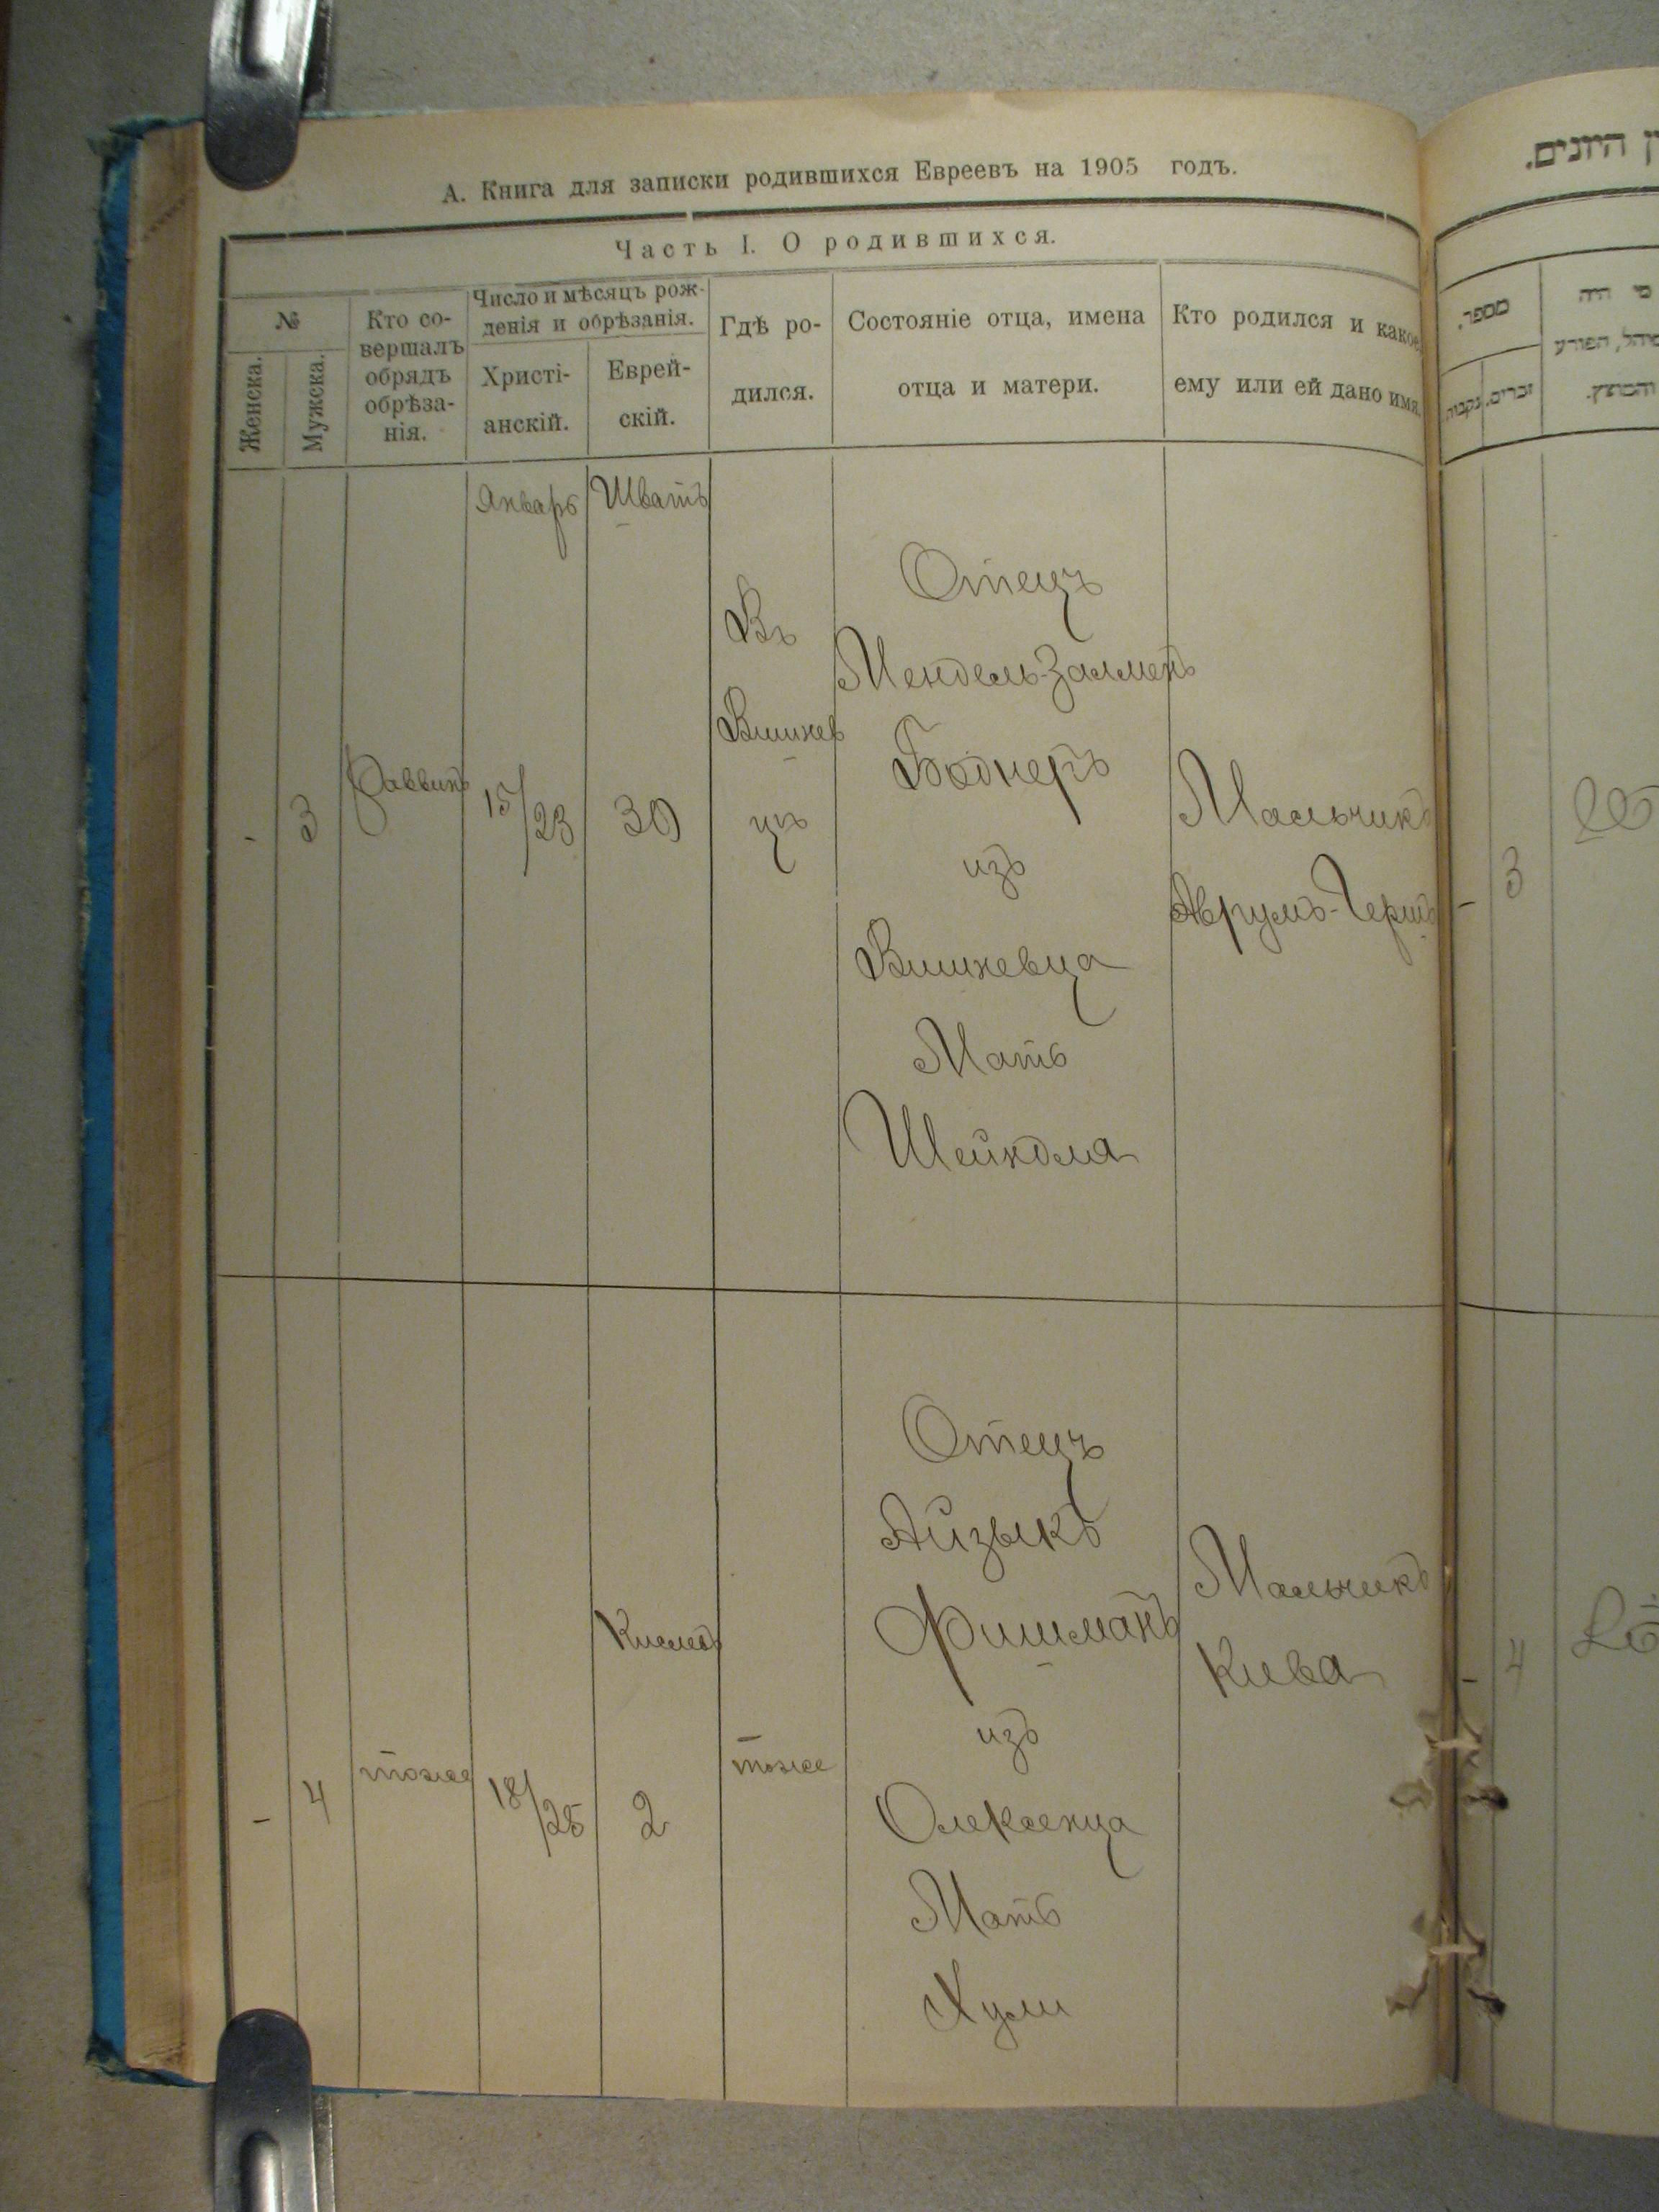 А. Книга для записки родившихся Евреевъ на 1905 годъ.
Часть I. О родившихся.
№
Женска.
Мужска.
Кто со-
вершалъ
обрядъ
обрѣза-
нія.
Число и мѣсяцъ рож-
денія и обрѣзанія.
Христі-
анскій.
Еврей-
скій.
Гдѣ ро-
дился.
Состояніе отца, имена
отца и матери.
Кто родился и какое
ему или ей дано имя.
Январь
Шватъ
-
3
Раввинъ
15/23
30
Въ
Вишнев
цѣ
Отецъ
Мендель-Залменъ
Боднеръ
изъ
Вишневца
Мать
Шейндля
Мальчикъ
Аврумъ-Гершъ
-
4
тоже
18/25
2
тоже
Отецъ
Айзыкъ
Фишманъ
изъ
Олексенца
Мать
Хули
Мальчикъ
Кива
ן היונים.
מספר.
נקבות.
זכרים.
מי היה
מוהל, הפורע
והמוצץ.
- 3
- 4